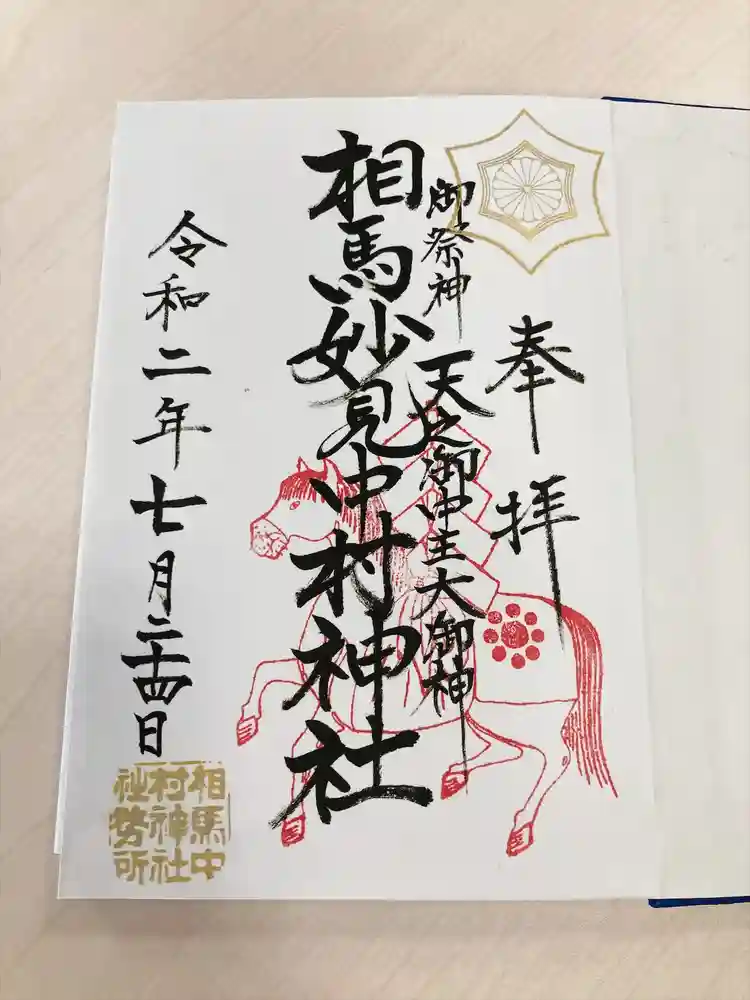 奉拝
御祭神 天之御中主大御神
相馬妙見中村神社
令和二年七月二十四日
相馬中村神社社務所